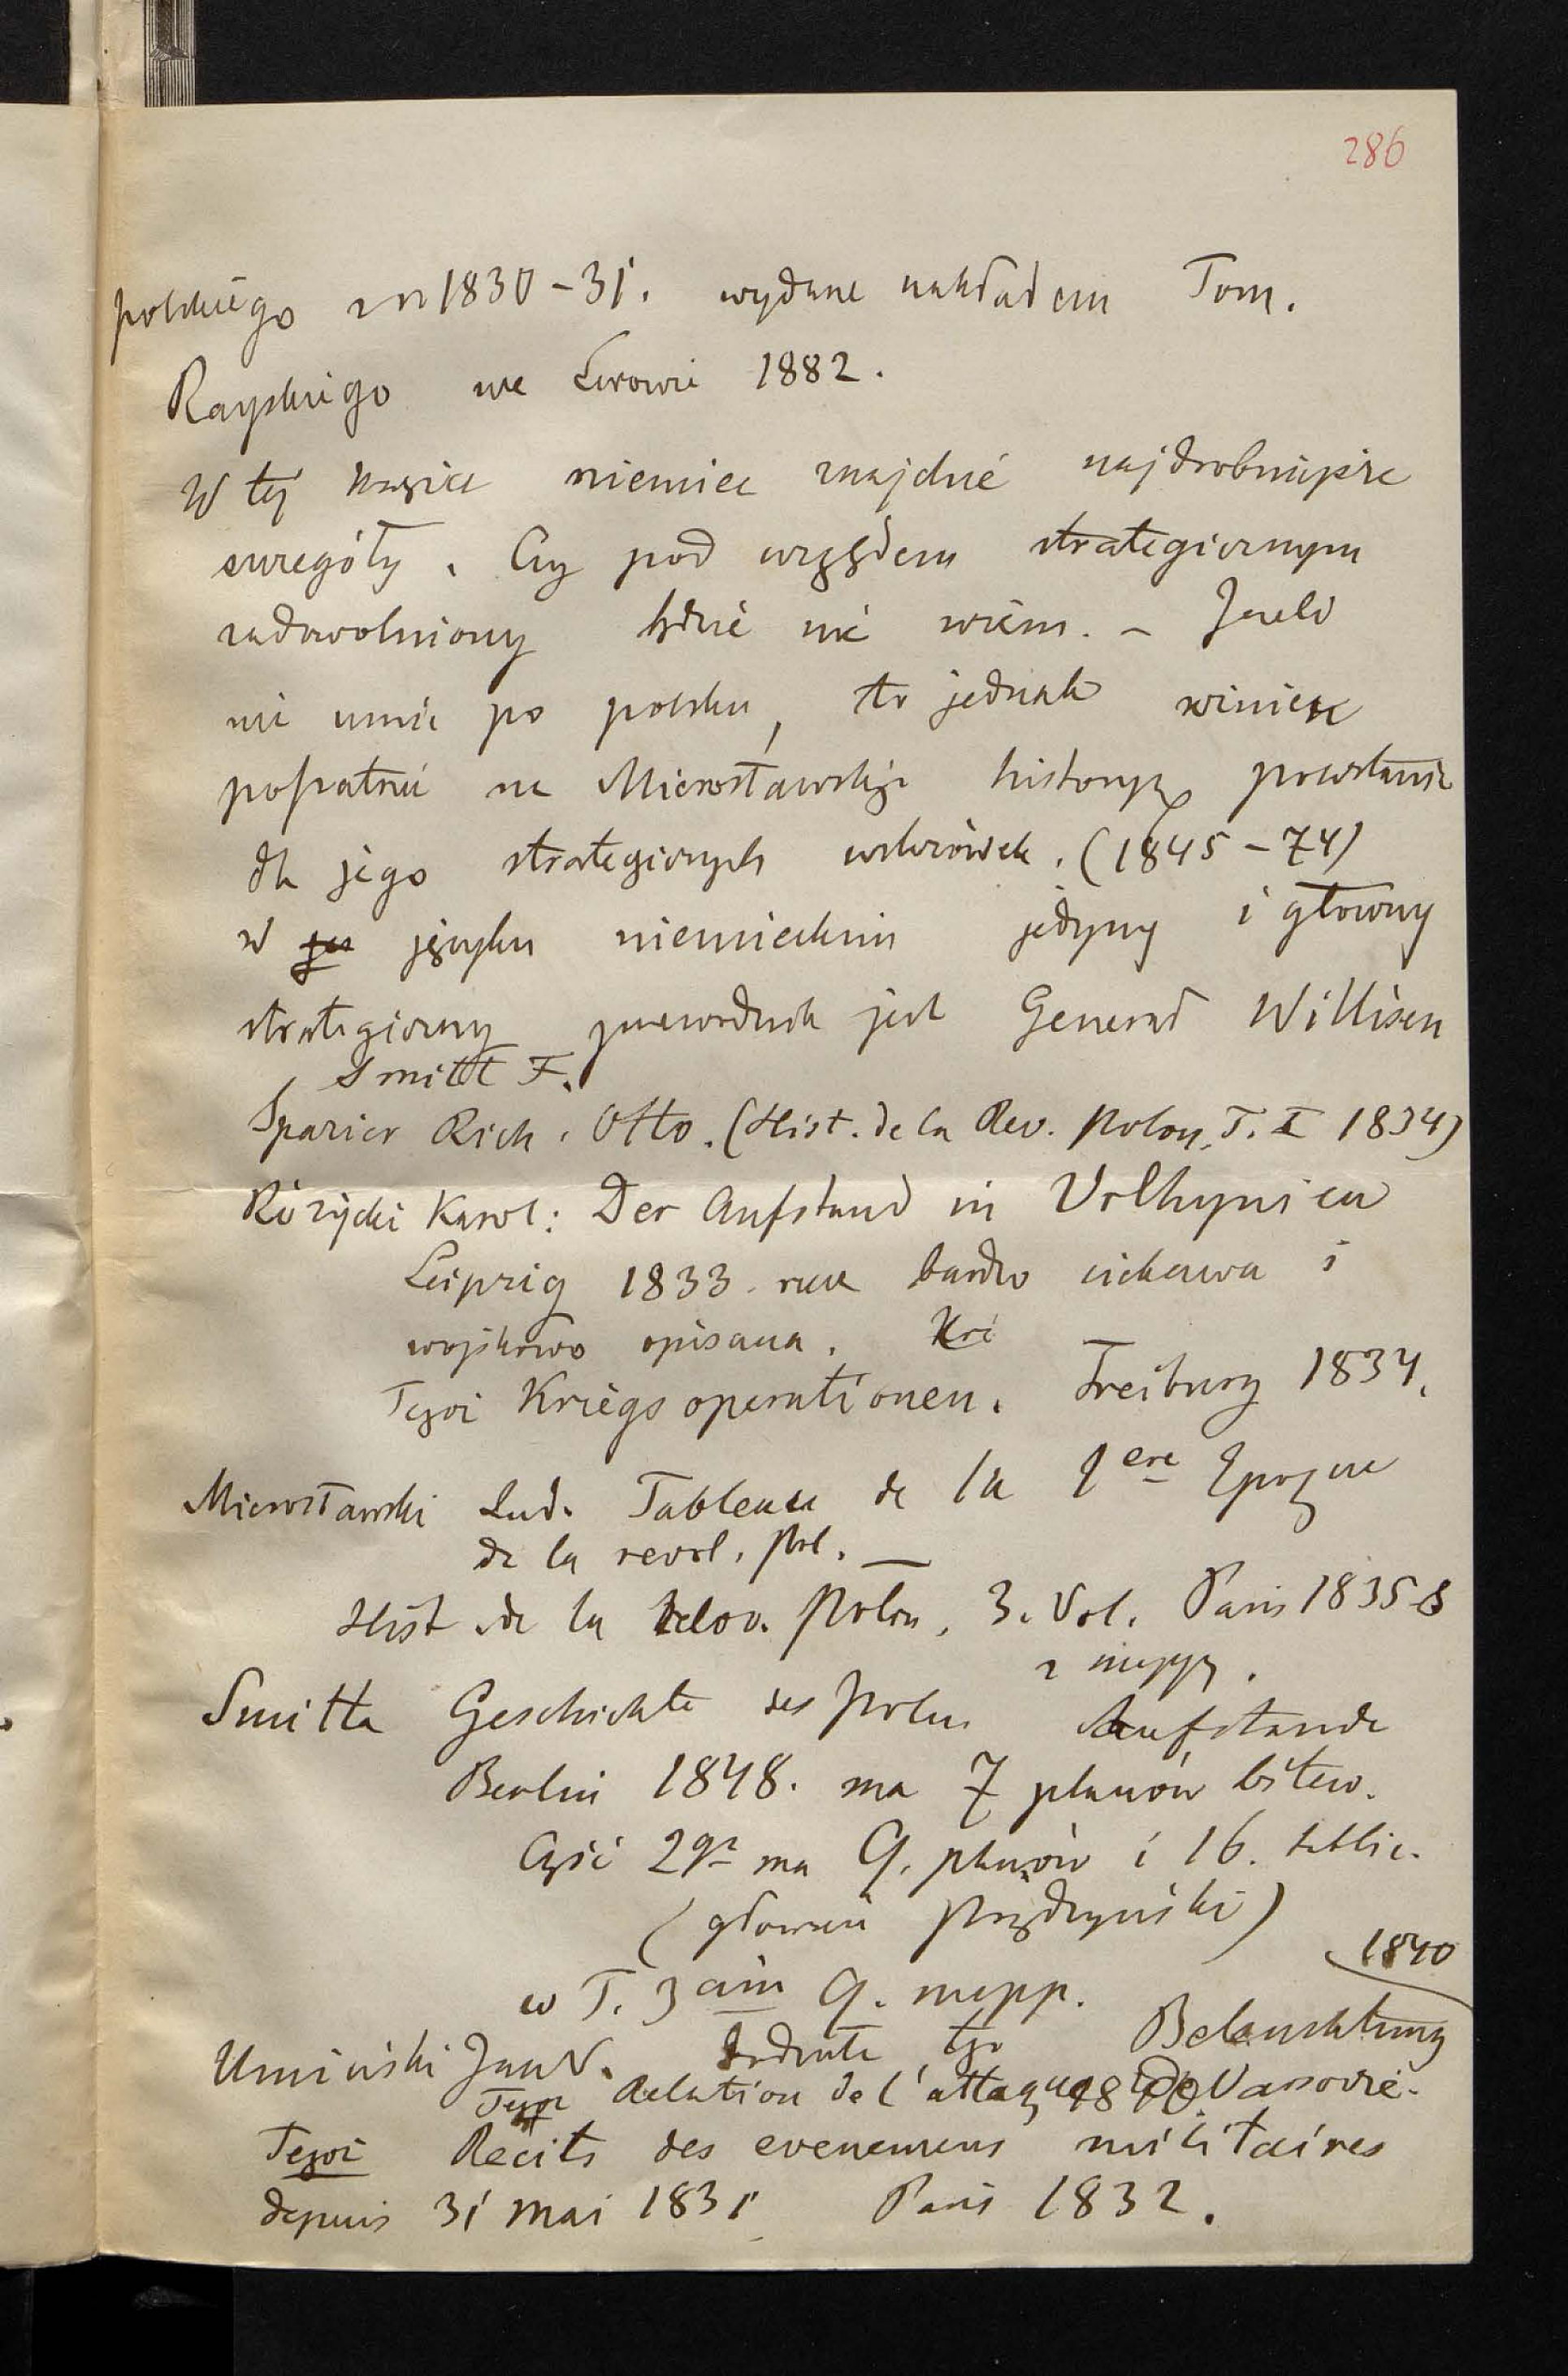 286
polskiego z r 1830-31. wydane nakładem Tom.
Rayskiego we Lwowie 1882.
W tej książce niemiec znajdzie najdrobniejsze
szczegóły. Czy pod względem strategicznym
zadowolniony będzie nie wiem. - Jeżeli
nie umie po polsku, to jednak winien
popatrzeć na Mierosławskiego historyę powstania
dla jego strategicznych wskazówek. (1845-74)
w języku niemieckim jedyny i głowny
strategiczny przewodnik jest Generał Willisen
Smitt F.
Spazier Rich. Otto. (Hist. de la Rev. Polon. T. I 1834)
Różycki Karol: Der Aufstand in Volhynien
Leipzig 1833. rzecz bardzo ciekawa i
wojskowo opisana. Kri
Tegoż Kriegsoperationen. Freiburg 1834.
Mierosławski Lud. Tableau de la 1ere Epoque
de la revol. pol. —
Hist de la Revov. Polon, 3. Vol. Paris 1835-8
z mappą.
Smitta Geschichte des poln. Aufstande
Berlin 1848. ma 7 planów bitew.
Część 2ga ma 9. planów i 16. tablic.
(głownie Prądzyński)
w T. 3cim 9. mapp.
1840
Umiński Jan N. tgo Beleuchtung
Tegoż Relation de l'attaque de Varsovie.
Tegoż Recits des evenemens militaires
depuis 31 mai 1831 Paris 1832.